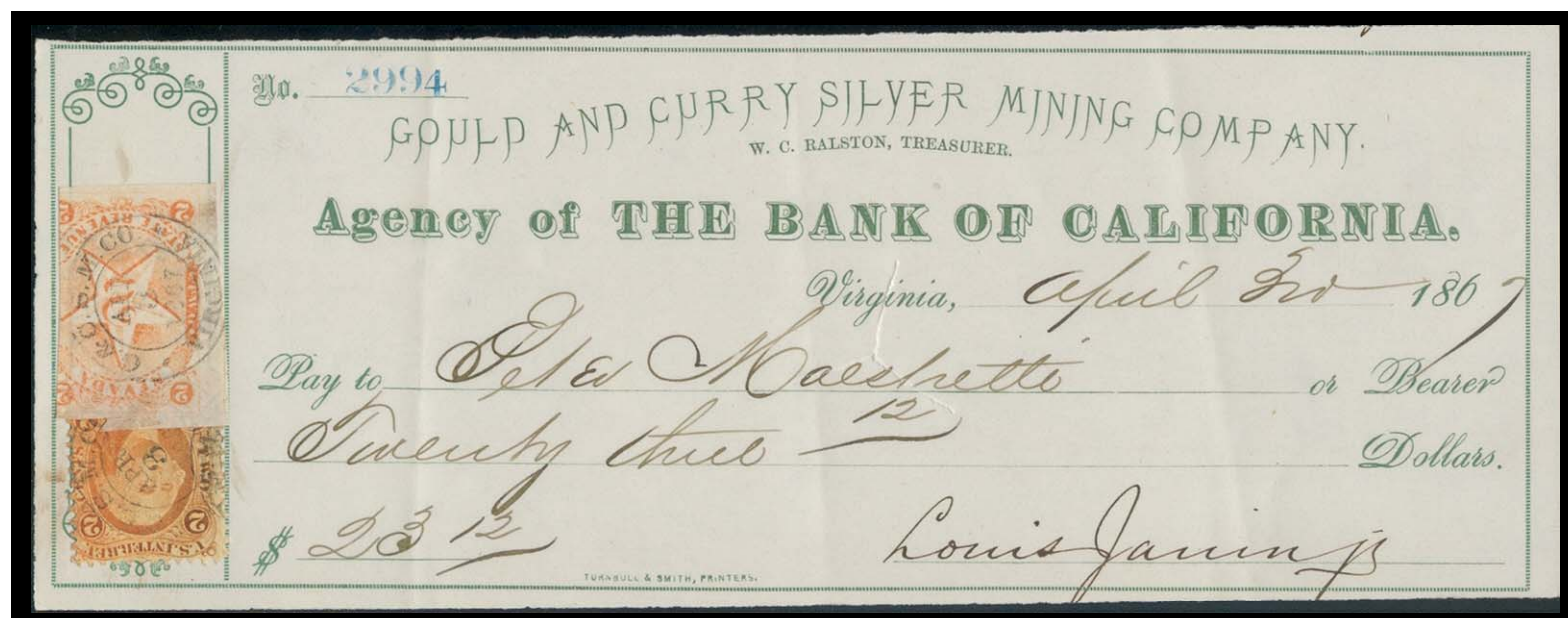 No. 2994
GOULD AND CURRY SILVER MINING COMPANY.
W. C. RALSTON, TREASURER.
Agency of THE BANK OF CALIFORNIA.
Virginia, April 3rd 1867
Pay to Peter Maestretti or Bearer
Twenty three 12 Dollars.
$ 23 12
Louis Janin jr
TURNBULL & SMITH, PRINTERS.
2 2
U.S. INTER. REV
2 2
G. & C. S. M. CO. VIRGINIA
APR
3
1867
APR
3
2 2
U.S. INTER. RE